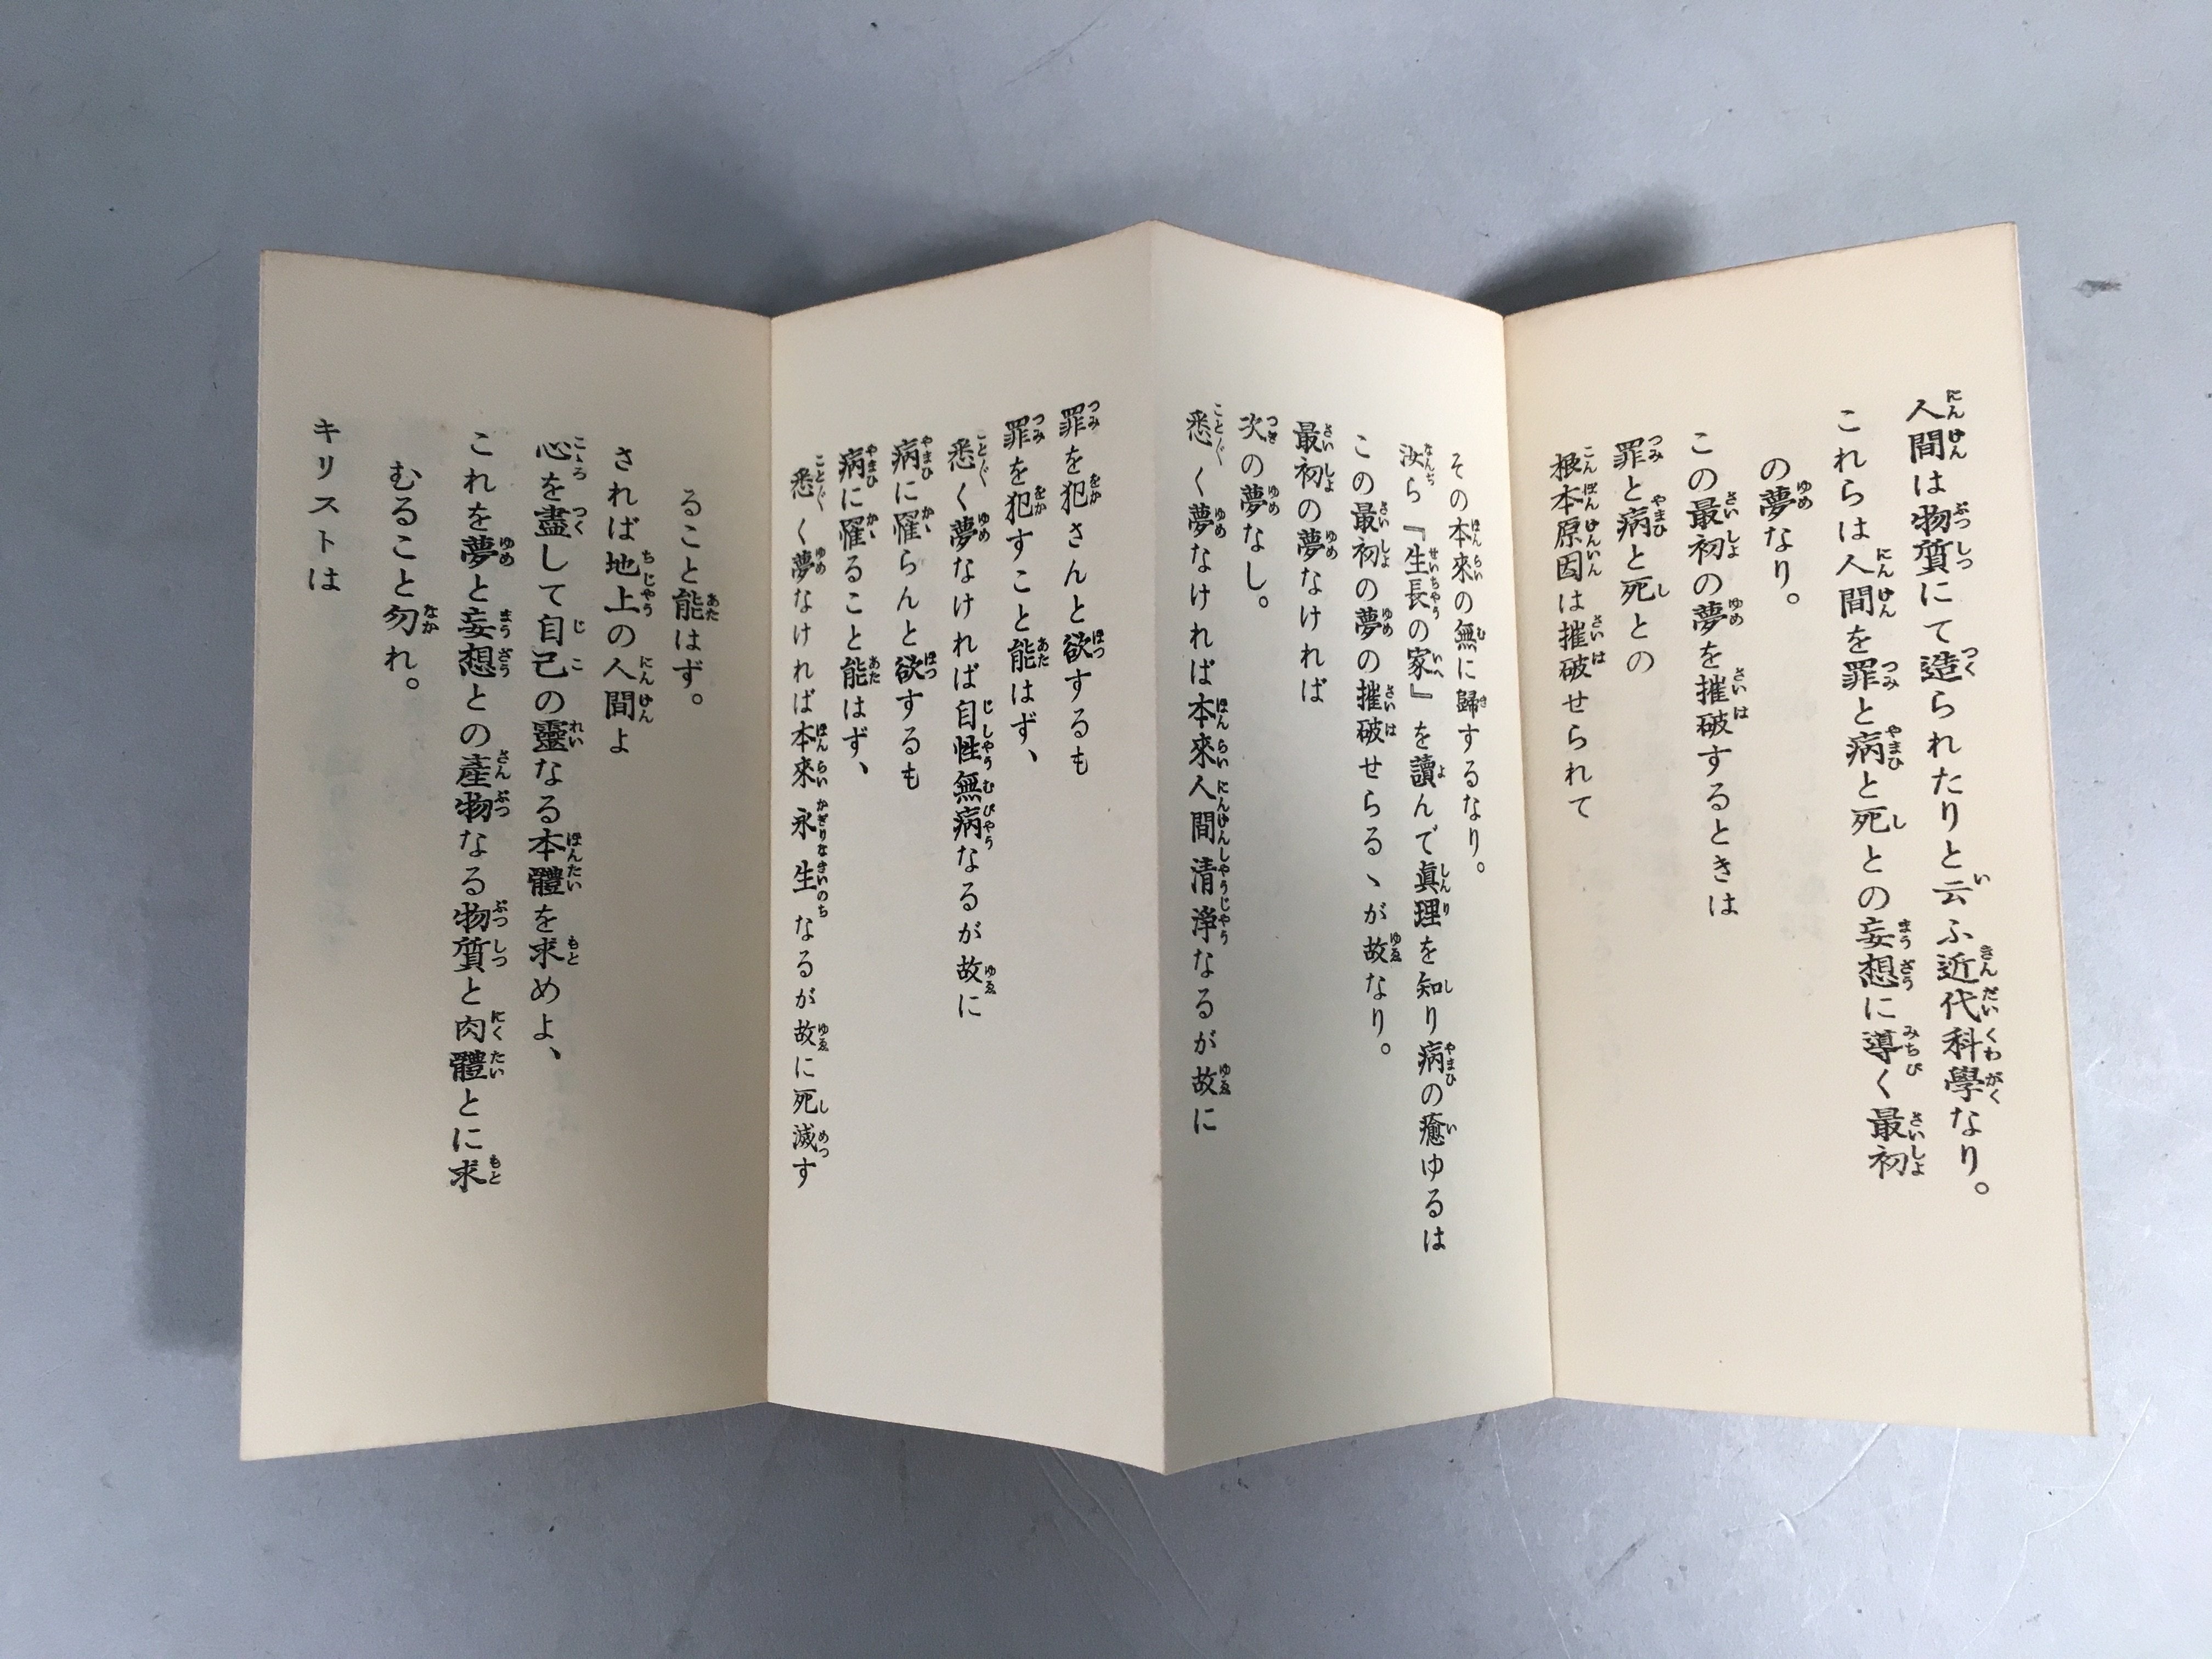 人間は物質にて造られたりと云ふ近代科學なり。
これらは人間を罪と病と死との妄想に導く最初
の夢なり。
この最初の夢を摧破するときは
罪と病と死との
根本原因は摧破せられて
その本來の無に歸するなり。
汝ら『生長の家』を讀んで眞理を知り病の癒ゆるは
この最初の夢の摧破せらるゝが故なり。
最初の夢なければ
次の夢なし。
悉く夢なければ本來人間清淨なるが故に
罪を犯さんと欲するも
罪を犯すこと能はず、
悉く夢なければ自性無病なるが故に
病に罹らんと欲するも
病に罹ること能はず、
悉く夢なければ本來永生なるが故に死滅す
ること能はず。
されば地上の人間よ
心を盡して自己の靈なる本體を求めよ、
これを夢と妄想との產物なる物質と肉體とに求
むること勿れ。
キリストは